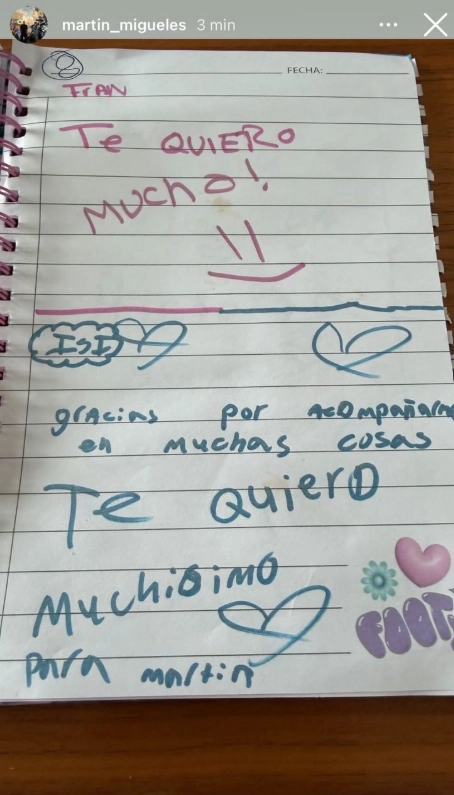 martin_migueles 3 min
FECHA:
FrAN
Te QUIERO
MUCHO!
ISI
grAcias por
en muchas cosas
Te quiero
Muchisimo
para martin